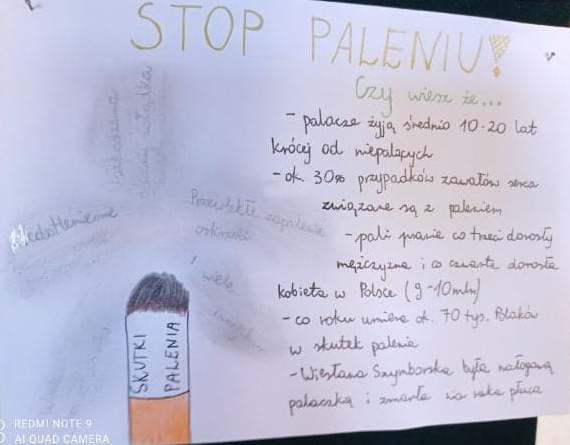 STOP PALENIU!
Czy wiesz że...
- palacze żyją średnio 10-20 lat
krócej od niepalących
- ok. 30% przypadków zawałów serca
związane są z paleniem
- pali prawie co trzeci dorosły
mężczyzna i co czwarta dorosła
kobieta w Polsce (9-10mln)
- co roku umiera ok. 70 tyś. Polaków
w skutek palenia
- Wiesława Szymborska była nałogową
palaczką i zmarła na raka płuca
Niedotlenienie
Przewlekłe zapalenie
oskrzeli
i wiele
innych
SKUTKI
PALENIA
REDMI NOTE 9
AI QUAD CAMERA